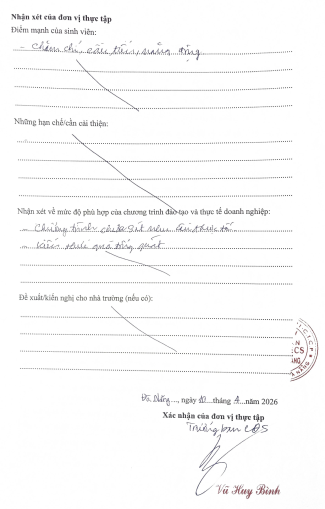 Nhận xét của đơn vị thực tập
Điểm mạnh của sinh viên:
- Chăm chỉ, cầu tiến, năng động
Những hạn chế/cần cải thiện:
Nhận xét về mức độ phù hợp của chương trình đào tạo và thực tế doanh nghiệp:
- Chương trình chưa sát nhu cầu thực tế
- Kiến thức quá tổng quát
Đề xuất/kiến nghị cho nhà trường (nếu có):
Đà Nẵng, ngày 10 tháng 4 năm 2026
Xác nhận của đơn vị thực tập
Trưởng ban
Vũ Huy Bình